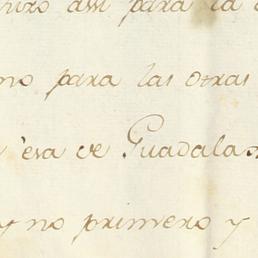 assi para la
no para las otras
esa de Guadala
y no primero y